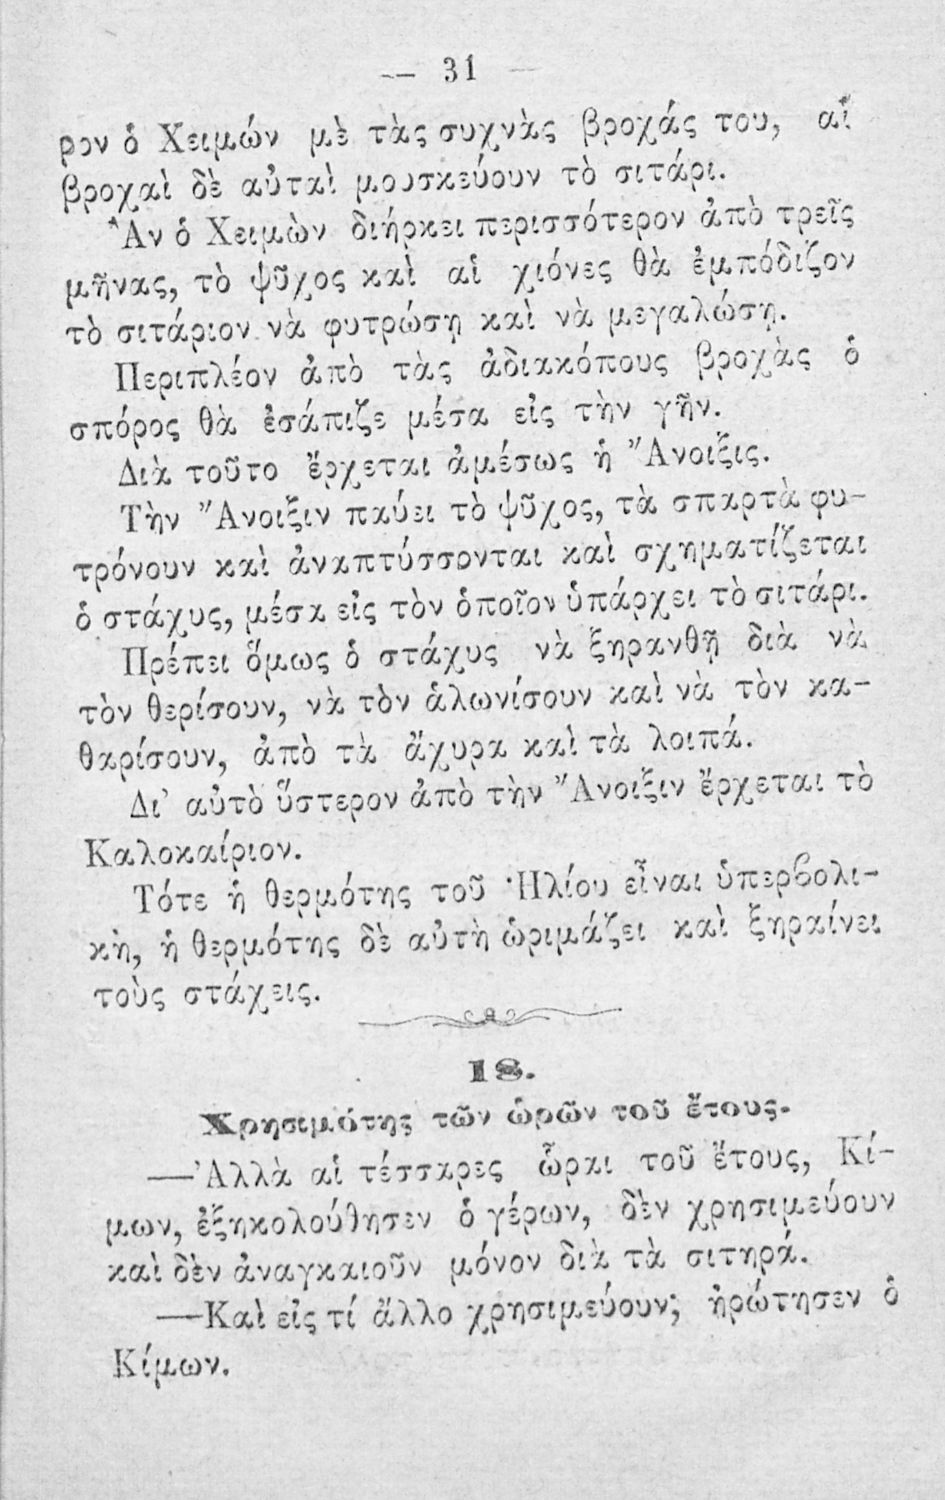 — 31 —
ρον ὁ Χειμών μὲ τὰς συχνὰς βροχάς του, αἱ
βροχαὶ δὲ αὐταὶ μουσκεύουν τὸ σιτάρι.
Ἂν ὁ Χειμὼν διήρκει περισσότερον ἀπὸ τρεῖς
μῆνας, τὸ ψῦχος καὶ αἱ χιόνες θὰ ἐμπόδιζον
τὸ σιτάριον νὰ φυτρώσῃ καὶ νὰ μεγαλώσῃ.
Περιπλέον ἀπὸ τὰς ἀδιακόπους βροχὰς ὁ
σπόρος θὰ ἐσάπιζε μέσα εἰς τὴν γῆν.
Διὰ τοῦτο ἔρχεται ἀμέσως ἡ Ἄνοιξις.
Τὴν Ἄνοιξιν παύει τὸ ψῦχος, τὰ σπαρτὰ φυ-
τρόνουν καὶ ἀναπτύσσονται καὶ σχηματίζεται
ὁ στάχυς, μέσα εἰς τὸν ὁποῖον ὑπάρχει τὸ σιτάρι.
Πρέπει ὅμως ὁ στάχυς νὰ ξηρανθῇ διὰ νὰ
τὸν θερίσουν, νὰ τὸν ἁλωνίσουν καὶ νὰ τὸν κα-
θαρίσουν, ἀπὸ τὰ ἄχυρα καὶ τὰ λοιπά.
Δι’ αὐτὸ ὕστερον ἀπὸ τὴν Ἄνοιξιν ἔρχεται τὸ
Καλοκαίριον.
Τότε ἡ θερμότης τοῦ Ἡλίου εἶναι ὑπερβολι-
κὴ, ἡ θερμότης δὲ αὐτὴ ὡριμάζει καὶ ξηραίνει
τοὺς στάχεις.
18.
Χρησιμότης τῶν ὡρῶν τοῦ ἔτους.
—Ἀλλὰ αἱ τέσσαρες ὧραι τοῦ ἔτους, Κί-
μων, ἐξηκολούθησεν ὁ γέρων, δὲν χρησιμεύουν
καὶ δὲν ἀναγκαιοῦν μόνον διὰ τὰ σιτηρά.
—Καὶ εἰς τί ἄλλο χρησιμεύουν; ἠρώτησεν ὁ
Κίμων.